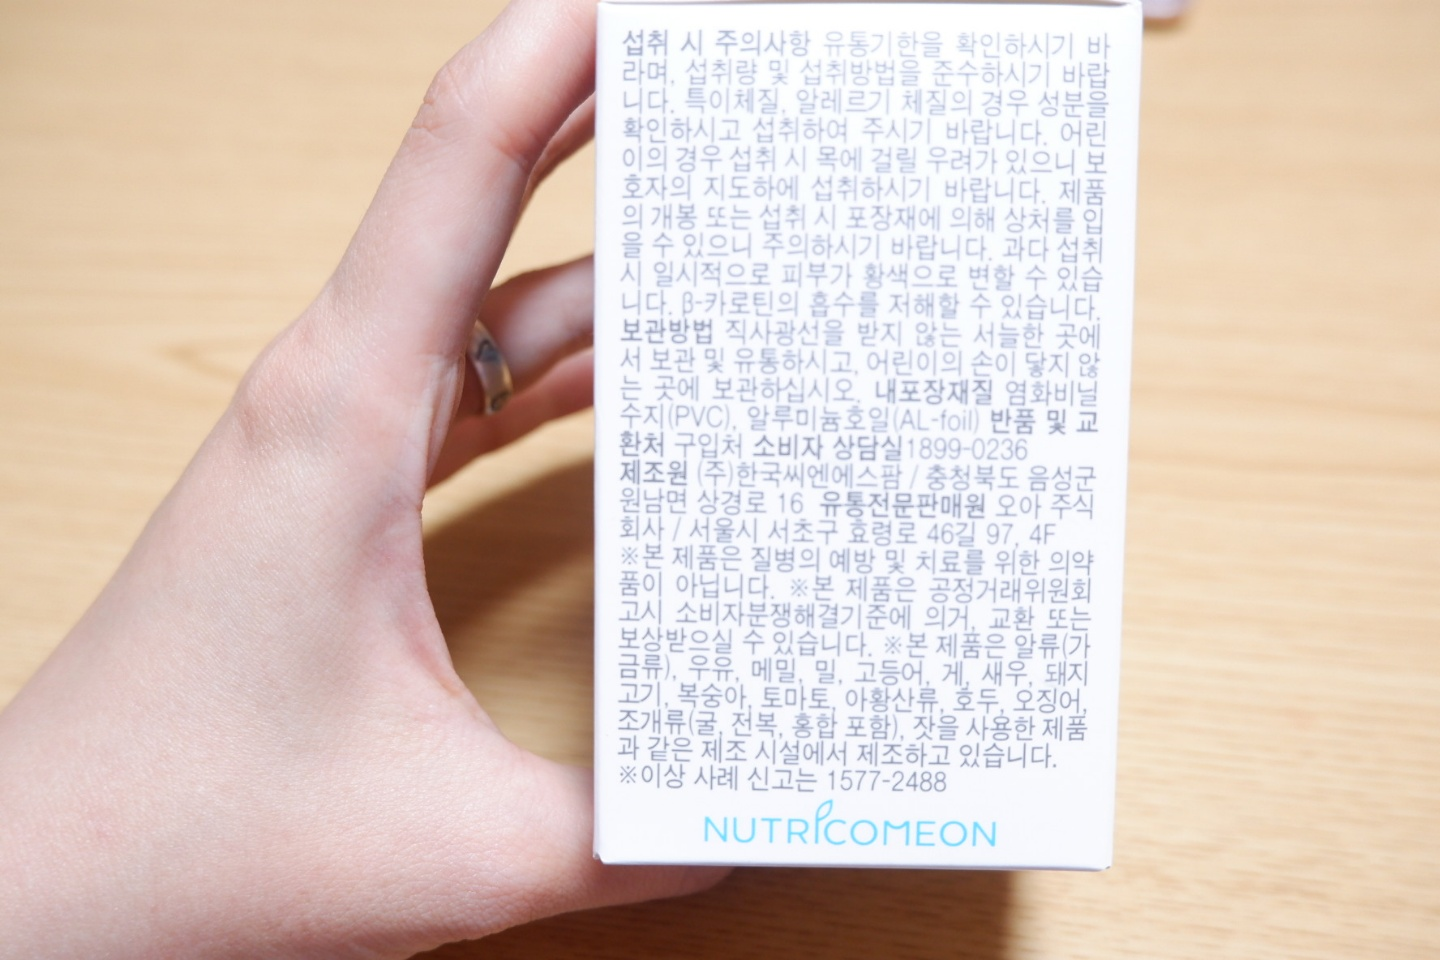 섭취 시 주의사항 유통기한을 확인하시기 바
라며, 섭취량 및 섭취방법을 준수하시기 바랍
니다. 특이체질, 알레르기 체질의 경우 성분을
확인하시고 섭취하여 주시기 바랍니다. 어린
이의 경우 섭취 시 목에 걸릴 우려가 있으니 보
호자의 지도하에 섭취하시기 바랍니다. 제품
의 개봉 또는 섭취 시 포장재에 의해 상처를 입
을 수 있으니 주의하시기 바랍니다. 과다 섭취
시 일시적으로 피부가 황색으로 변할 수 있습
니다. β-카로틴의 흡수를 저해할 수 있습니다.
보관방법 직사광선을 받지 않는 서늘한 곳에
서 보관 및 유통하시고, 어린이의 손이 닿지 않
는 곳에 보관하십시오. 내포장재질 염화비닐
수지(PVC), 알루미늄호일(AL-foil) 반품 및 교
환처 구입처 소비자 상담실1899-0236
제조원 (주)한국씨엔에스팜 / 충청북도 음성군
원남면 상경로 16 유통전문판매원 오아 주식
회사 / 서울시 서초구 효령로 46길 97, 4F
※본 제품은 질병의 예방 및 치료를 위한 의약
품이 아닙니다. ※본 제품은 공정거래위원회
고시 소비자분쟁해결기준에 의거, 교환 또는
보상받으실 수 있습니다. ※본 제품은 알류(가
금류), 우유, 메밀, 밀, 고등어, 게, 새우, 돼지
고기, 복숭아, 토마토, 아황산류, 호두, 오징어,
조개류(굴, 전복, 홍합 포함), 잣을 사용한 제품
과 같은 제조 시설에서 제조하고 있습니다.
※이상 사례 신고는 1577-2488
NUTRICOMEON